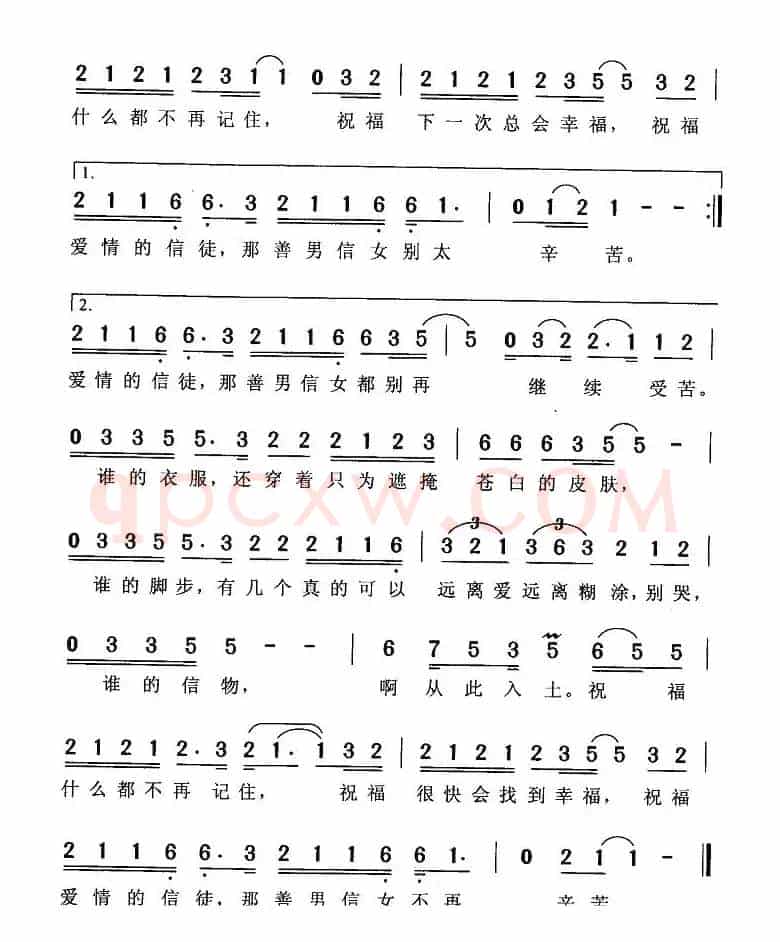 2 1 2 1 2 3 1 1 0 3 2 | 2 1 2 1 2 3 5 5 3 2 |
什么都不再记住， 祝福 下一次总会幸福，祝福
1.
2 1 1 6 6· 3 2 1 1 6 6 1· | 0 1 2 1 - - :||
爱情的信徒，那善男信女别太 辛 苦。
2.
2 1 1 6 6· 3 2 1 1 6 6 3 5 | 5 0 3 2 2· 1 1 2 |
爱情的信徒，那善男信女都别再 继 续 受苦。
0 3 3 5 5· 3 2 2 2 2 1 2 3 | 6 6 6 3 5 5 - |
谁的衣服，还穿着只为遮掩 苍白的皮肤，
qpcxw.COM
0 3 3 5 5· 3 2 2 2 1 1 6 | 3 2 1 3 6 3 2 1 2 |
3 3
谁的脚步，有几个真的可以 远离爱远离糊涂，别哭，
0 3 3 5 5 - - | 6 7 5 3 5 6 5 5 |
谁的信物， 啊从此入土。祝 福
2 1 2 1 2· 3 2 1· 1 3 2 | 2 1 2 1 2 3 5 5 3 2 |
什么都不再 记住， 祝福 很快会找到幸福，祝福
2 1 1 6 6· 3 2 1 1 6 6 1· | 0 2 1 1 - ||
爱情的信徒，那善男信女不再 辛苦